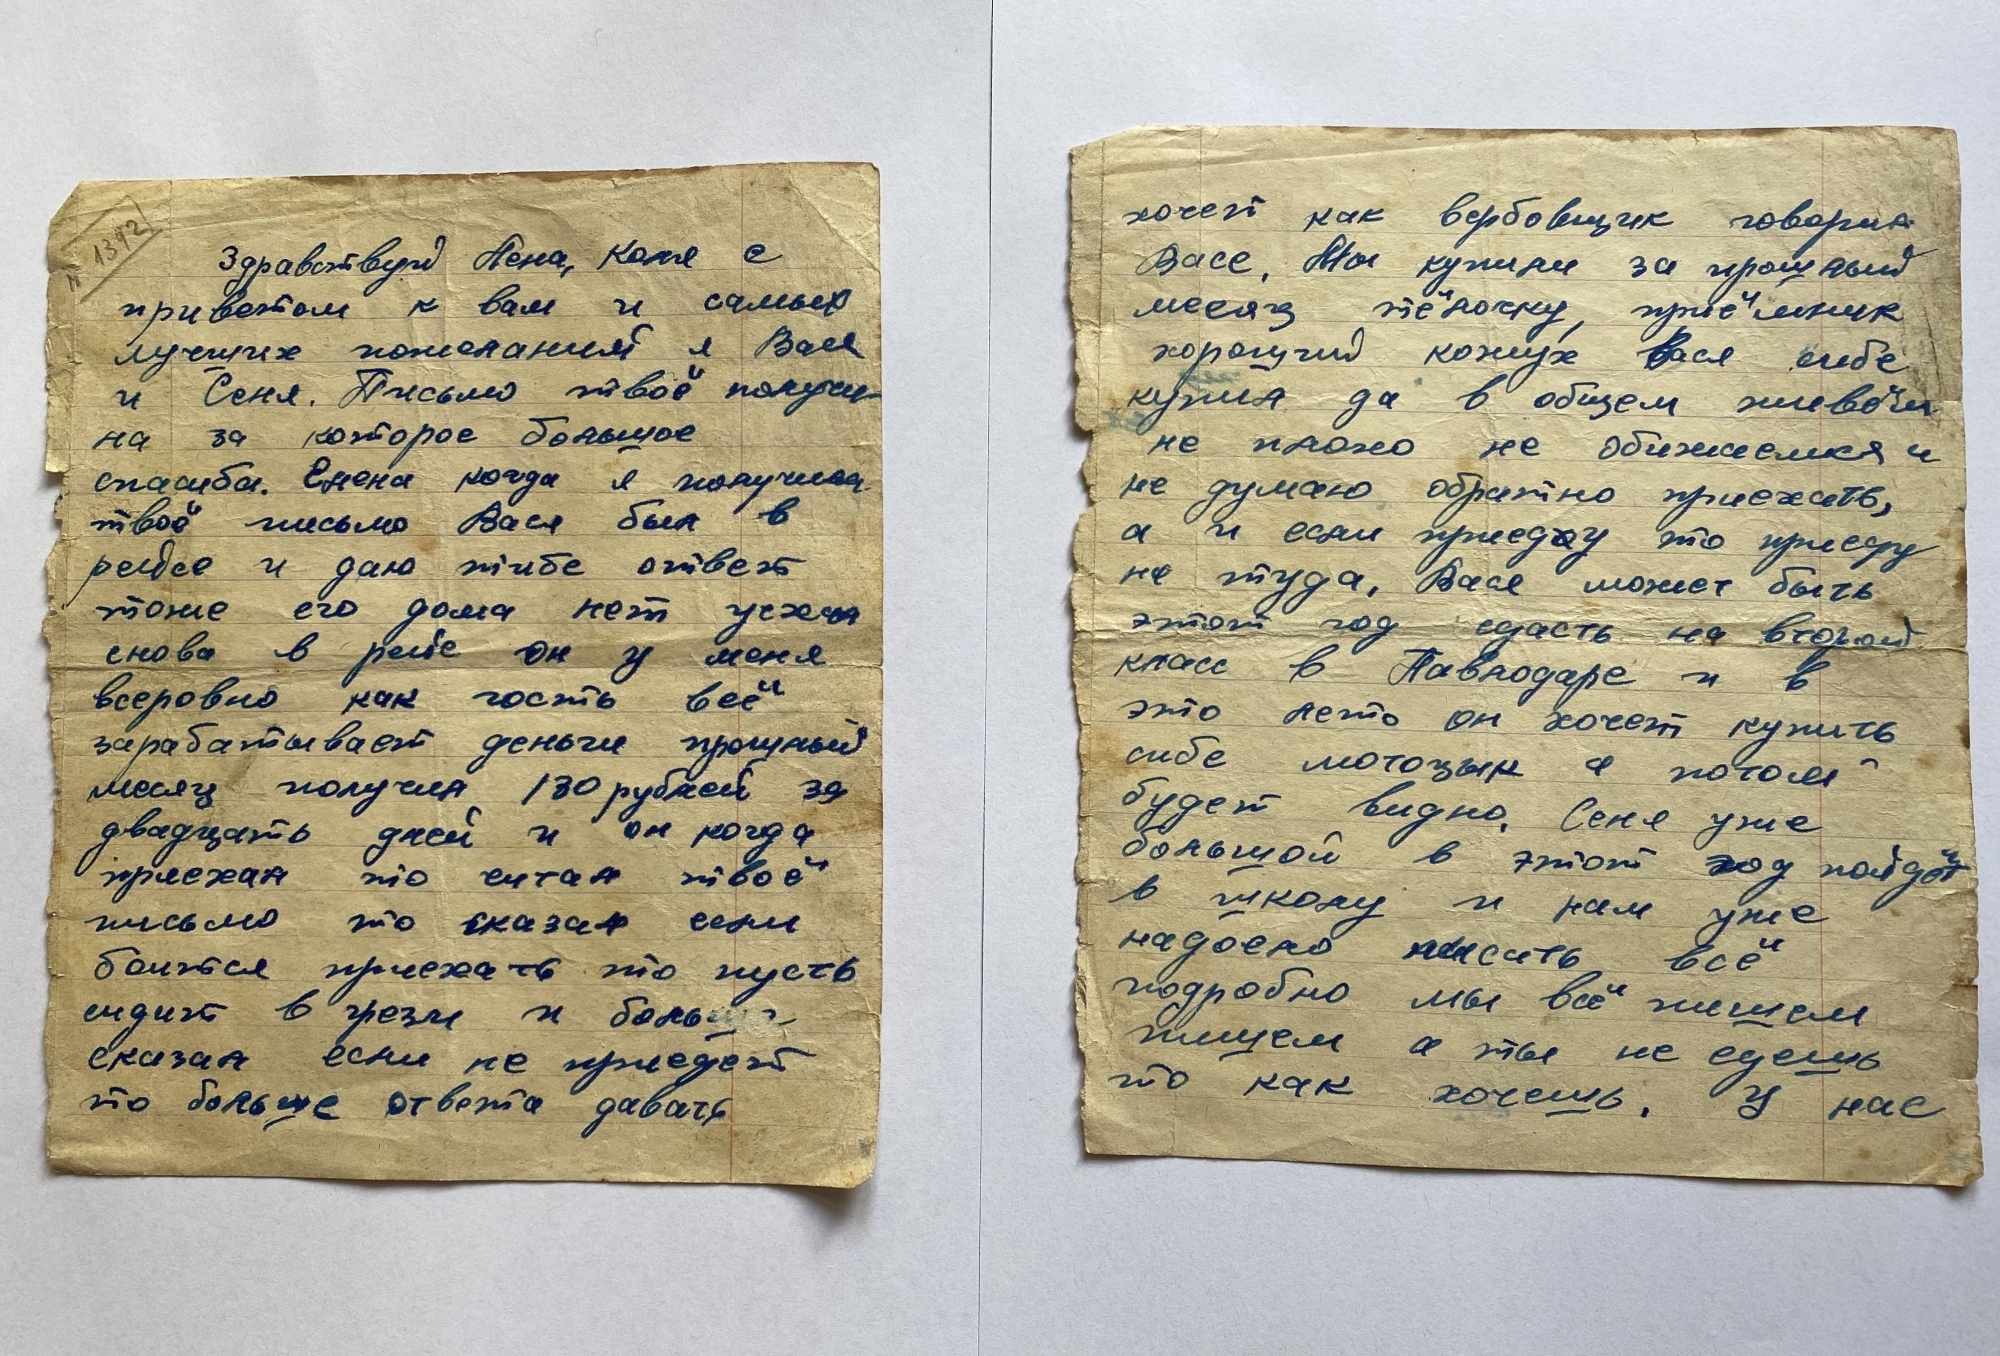 1392
Здравствуй Лена, Коля с
приветом к вам и самых
лучших пожеланий я Вася
и Сеня. Письмо твоё получи-
ла за которое большое
спасиба. Елена когда я получила
твоё письмо Вася был в
рейсе и даю тибе ответ
тоже его дома нет уехал
снова в рейс он у меня
всеровно как гость всё
зарабатывает деньги прошлый
месяц получил 130 рублей за
двадцать дней и он когда
приехал то читал твоё
письмо то сказал если
боится приехать то пусть
сидит в грези и больше
сказал если не приедет
то больше ответа давать
хочет как вербовщик говорил
Васе. Мы купили за прошлый
месяц тёлочку, приёмник
хороший кожух Вася сибе
купил да в общем живём
не плохо не обижаемся и
не думаю обратно приехать,
а и если приеду то приеду
не туда, Вася может быть
этот год сдасть на второй
класс в Павлодаре и в
это лето он хочет купить
сибе мотоцык а потом
будет видно. Сеня уже
большой в этот год пойдёт
в школу и нам уже
надоело писать всё
подробно мы всё пишем
пишем а ты не едешь
то как хочешь. У нас